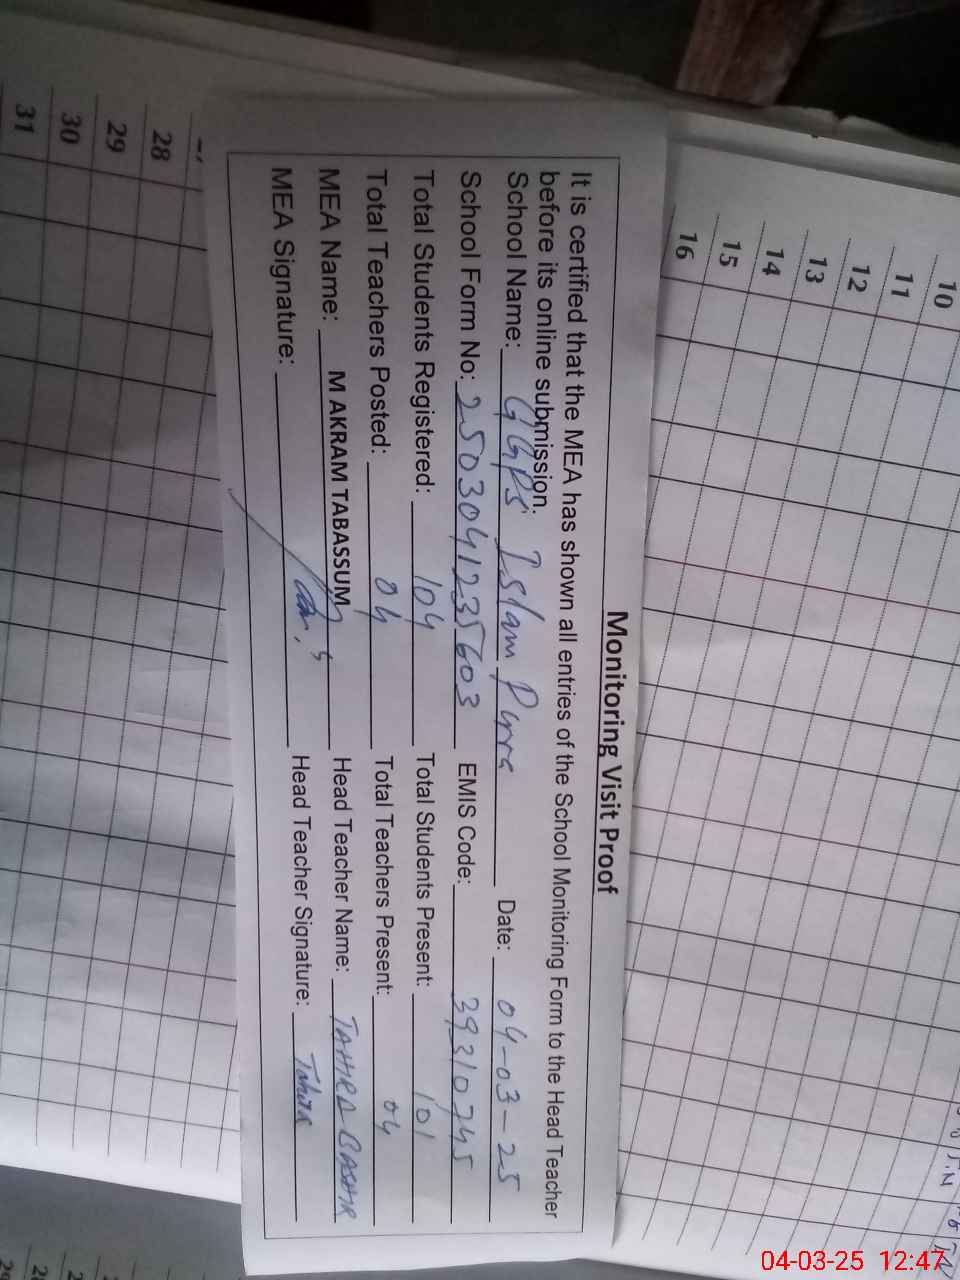 Monitoring Visit Proof
It is certified that the MEA has shown all entries of the School Monitoring Form to the Head Teacher
before its online submission.
School Name: GGPS Islam Pura Date: 04-03-25
School Form No: 2503041235603 EMIS Code: 39310745
Total Students Registered: 104 Total Students Present: 101
Total Teachers Posted: 04 Total Teachers Present: 04
MEA Name: M AKRAM TABASSUM Head Teacher Name: TAHIRA BASHIR
MEA Signature: Head Teacher Signature: Tahira
10
11
12
13
14
15
16
28
29
30
31
04-03-25 12:47